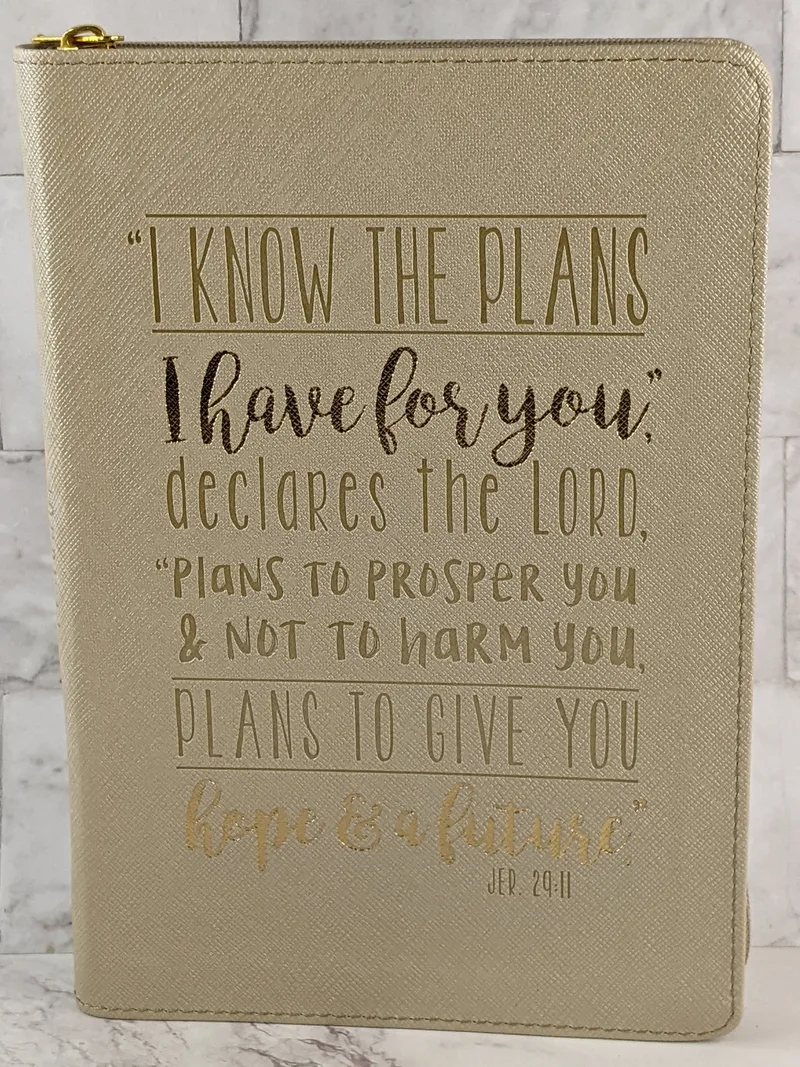 “I KNOW THE PLANS
I have for you,”
declares the LORD,
“Plans to prosper you
& not to harm you,
PLANS TO GIVE YOU
hope & a future”
JER. 29:11